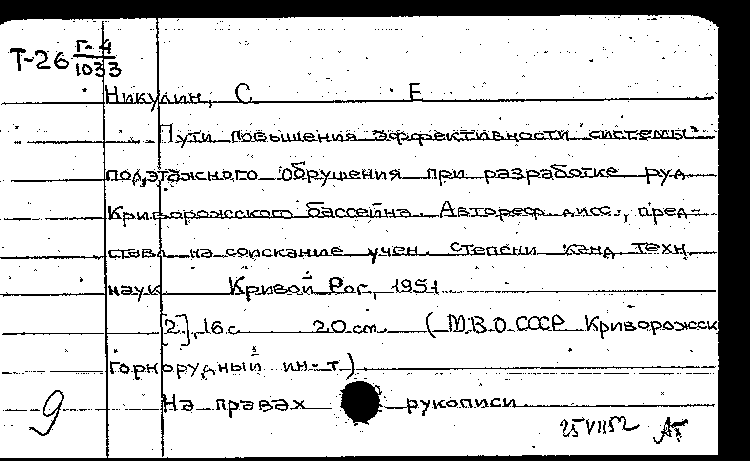 Т-26 Г-4
1033
Никулин, С. Е
Пути повышения эффективности системы
подэтажного обрушения при разработке руд
Криворожского бассейна. Автореф. дисс., пред-
ставл. на соискание учен. степени канд. техн.
наук. Кривой Рог, 1951.
[2], 16 с. 20 см. (М.В.О. СССР. Криворожск.
горнорудный ин-т).
На правах рукописи.
9
25 VII 52